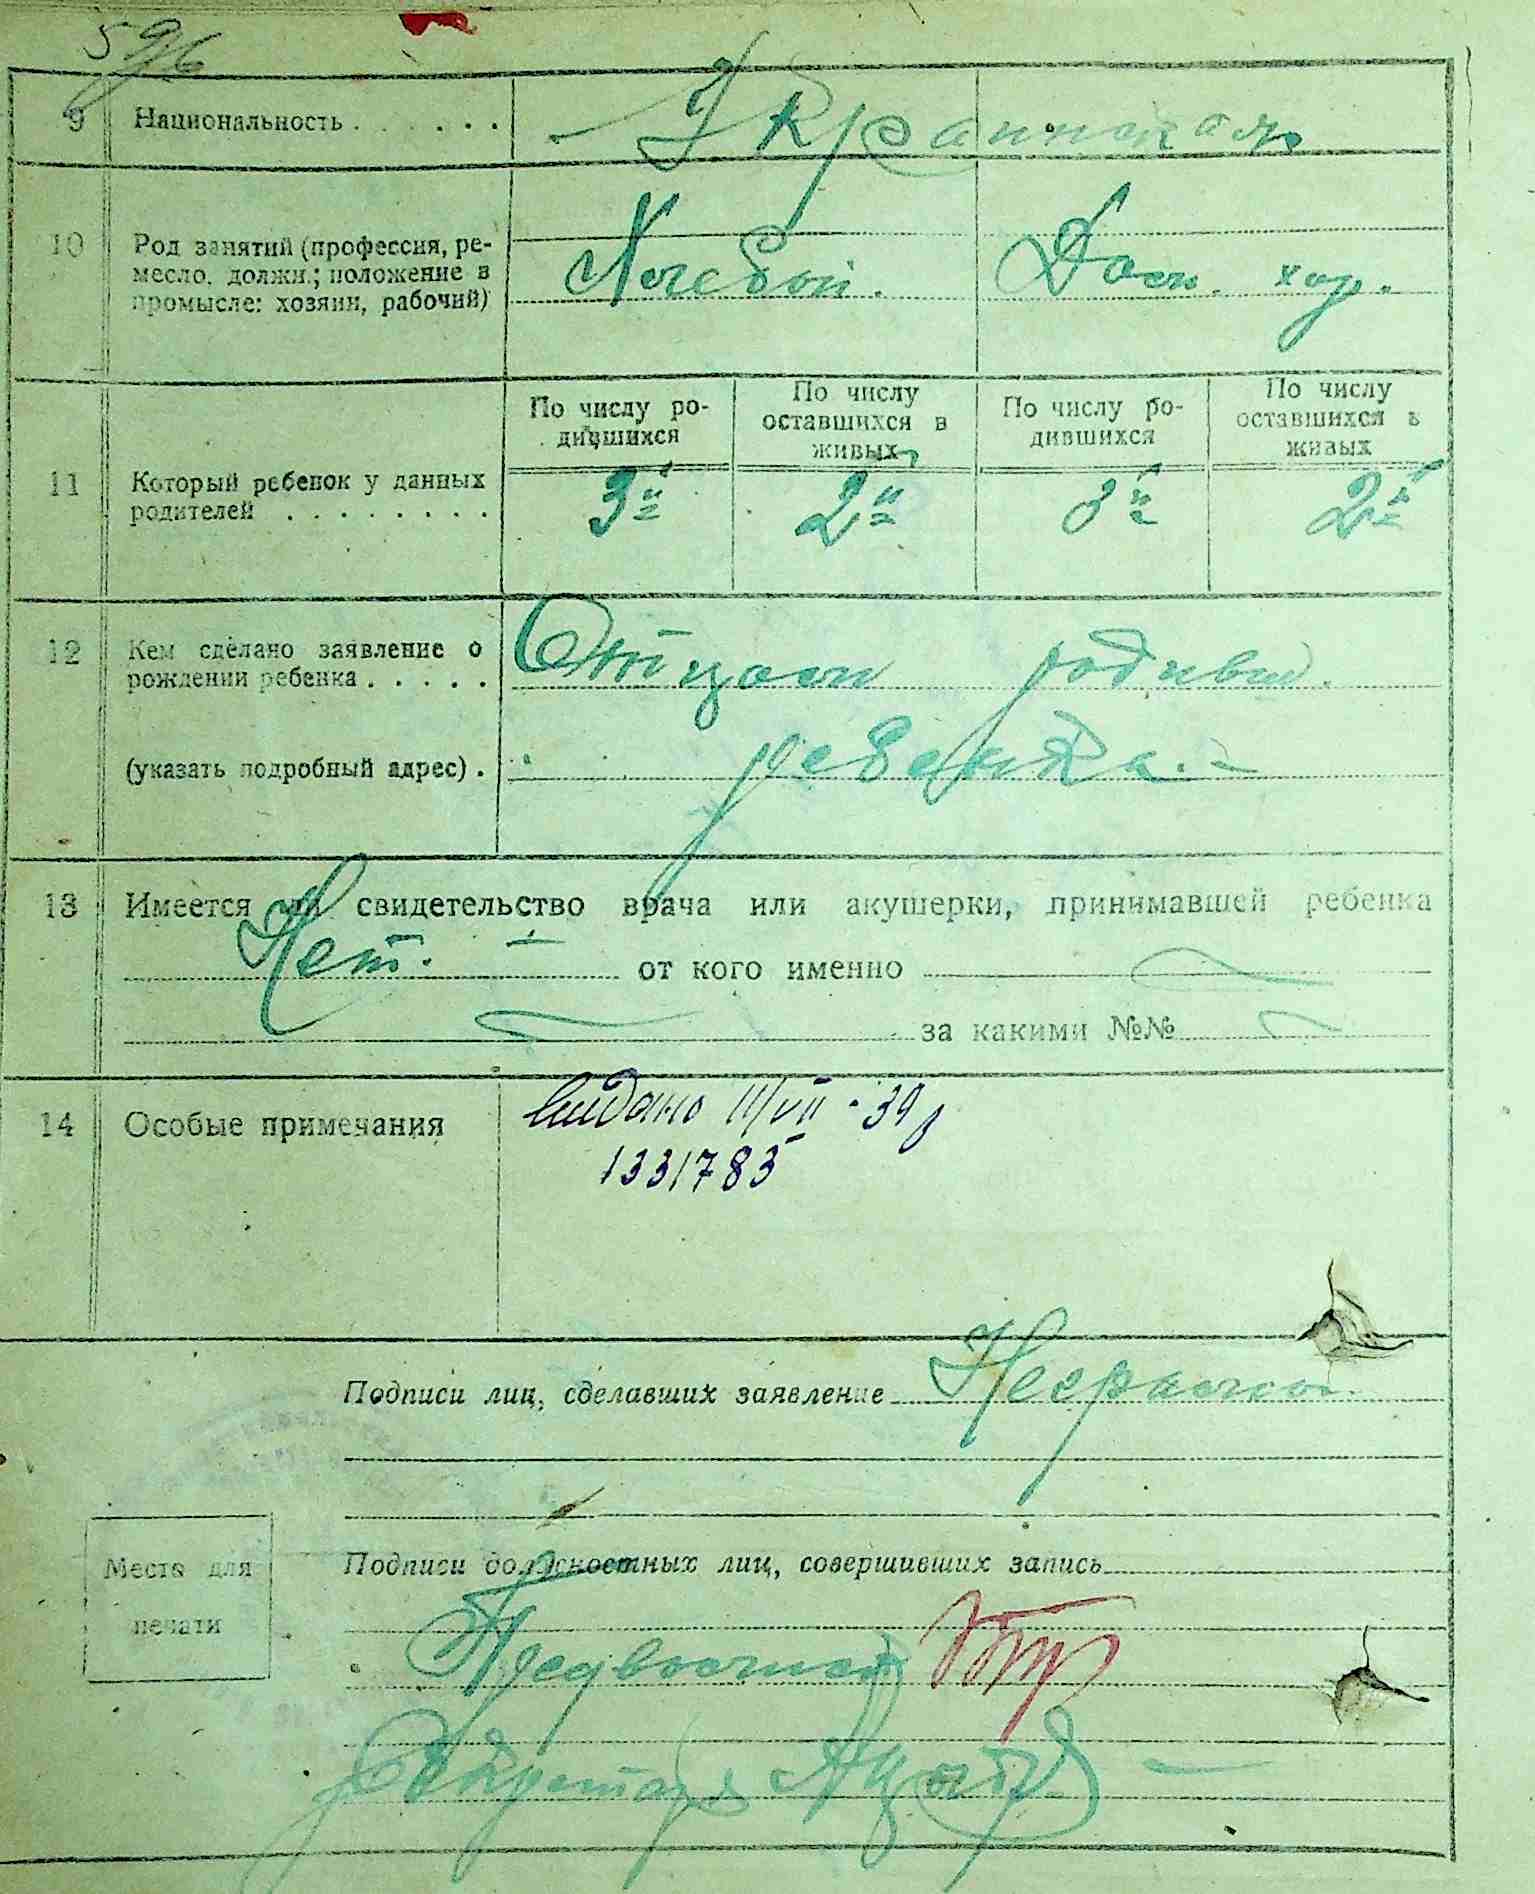 9 Национальность . . . . . . Украинская
10 Род занятий (профессия, ре-
месло, должн.; положение в
промысле: хозяин, рабочий)
Дом. хоз.
По числу ро-
дившихся
По числу
оставшихся в
живых
По числу ро-
дившихся
По числу
оставшихся в
живых
11 Который ребенок у данных
родителей . . . . . . . .
3й 2й 3й 2й
12 Кем сделано заявление о
рождении ребенка . . . . .
Отцом родивш.
(указать подробный адрес) .
ребенка. -
13 Имеется ли свидетельство врача или акушерки, принимавшей ребенка
Нет. - от кого именно
за какими №№
14 Особые примечания
Видано 11/VII - 39
1331783
Подписи лиц, сделавших заявление
Подписи должностных лиц, совершивших запись
Место для
печати
Секретарь